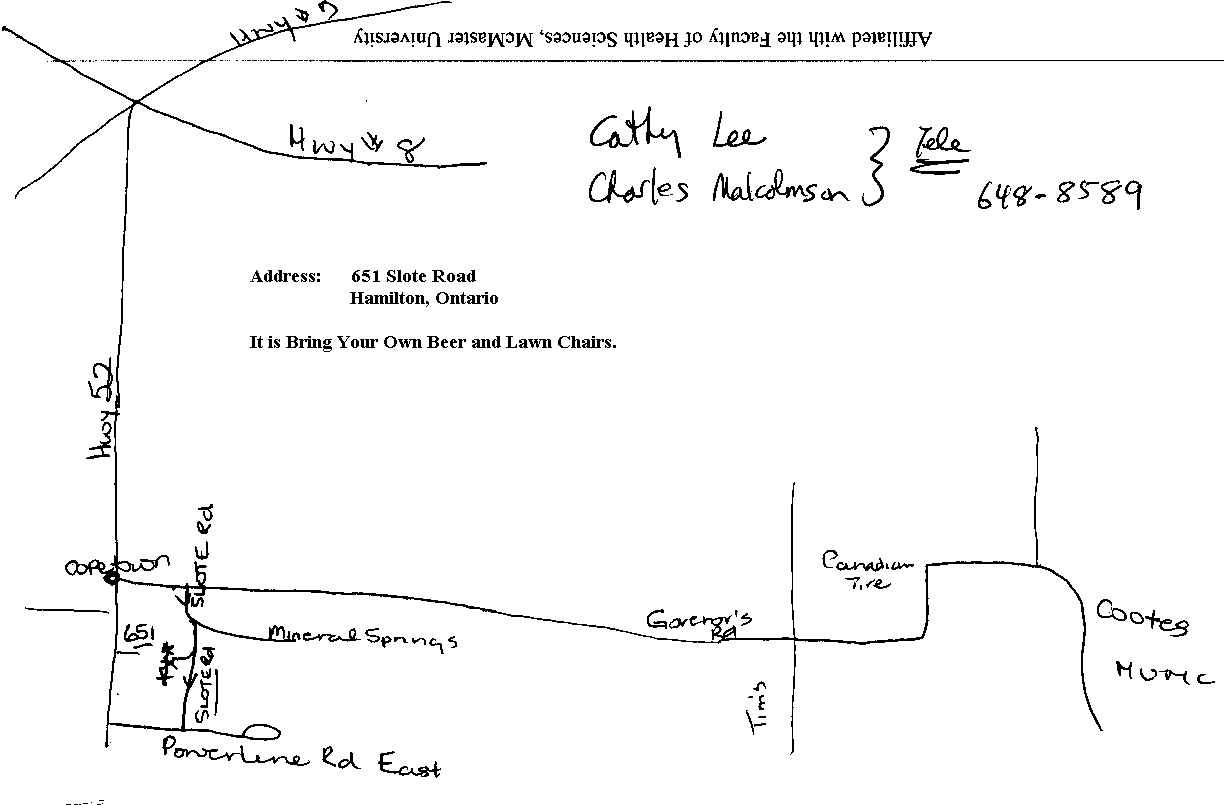 Hwy # 5
Affiliated with the Faculty of Health Sciences, McMaster University
Hwy # 8
Cathy Lee
Charles Malcolmson
Tele
648-8589
Address: 651 Slote Road
Hamilton, Ontario
It is Bring Your Own Beer and Lawn Chairs.
Hwy 52
Copetown
SLOTE Rd
Canadian
Tire
Governor's
Rd
Cootes
651
Mineral Springs
MUMC
SLOTE Rd
Tim's
Powerline Rd East